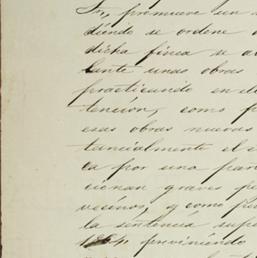 Sr, promueve un
diendo se ordene
dicha finca se a
lante unas obras
practicando en el
tencion, como f
esas obras nuevas
tancialmente el
ca por una par
cionan graves pe
vecinos, y como pu
la sentencia sup
previniendo